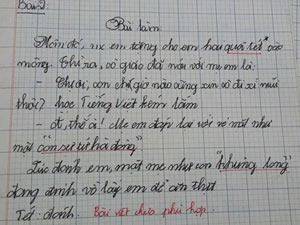 Bài 2:
Bài làm
Hôm đó, mẹ em tặng cho em hai quai tét vào
mông. Thì ra, cô giáo đã nói với mẹ em là:
- Chị ơi, con chị giờ nào cũng xin cô đi xì nuối
thôi? học Tiếng Việt kém lắm
- Ơ, thế à! Mẹ em đáp lại với vẻ mặt như
một "con sư tử hà đông"
Lúc đánh em, mặt mẹ như con "khủng long"
đang định vồ lấy em để ăn thịt
Tét: đánh.
Bài viết chưa phù hợp.